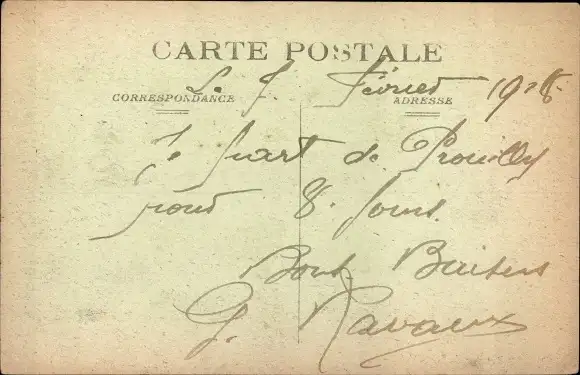 CARTE POSTALE
CORRESPONDANCE
ADRESSE
Le 7. Février 1918
Je part de Prouilly
pour 8. Jours.
Bons Baisers
G. Navaux